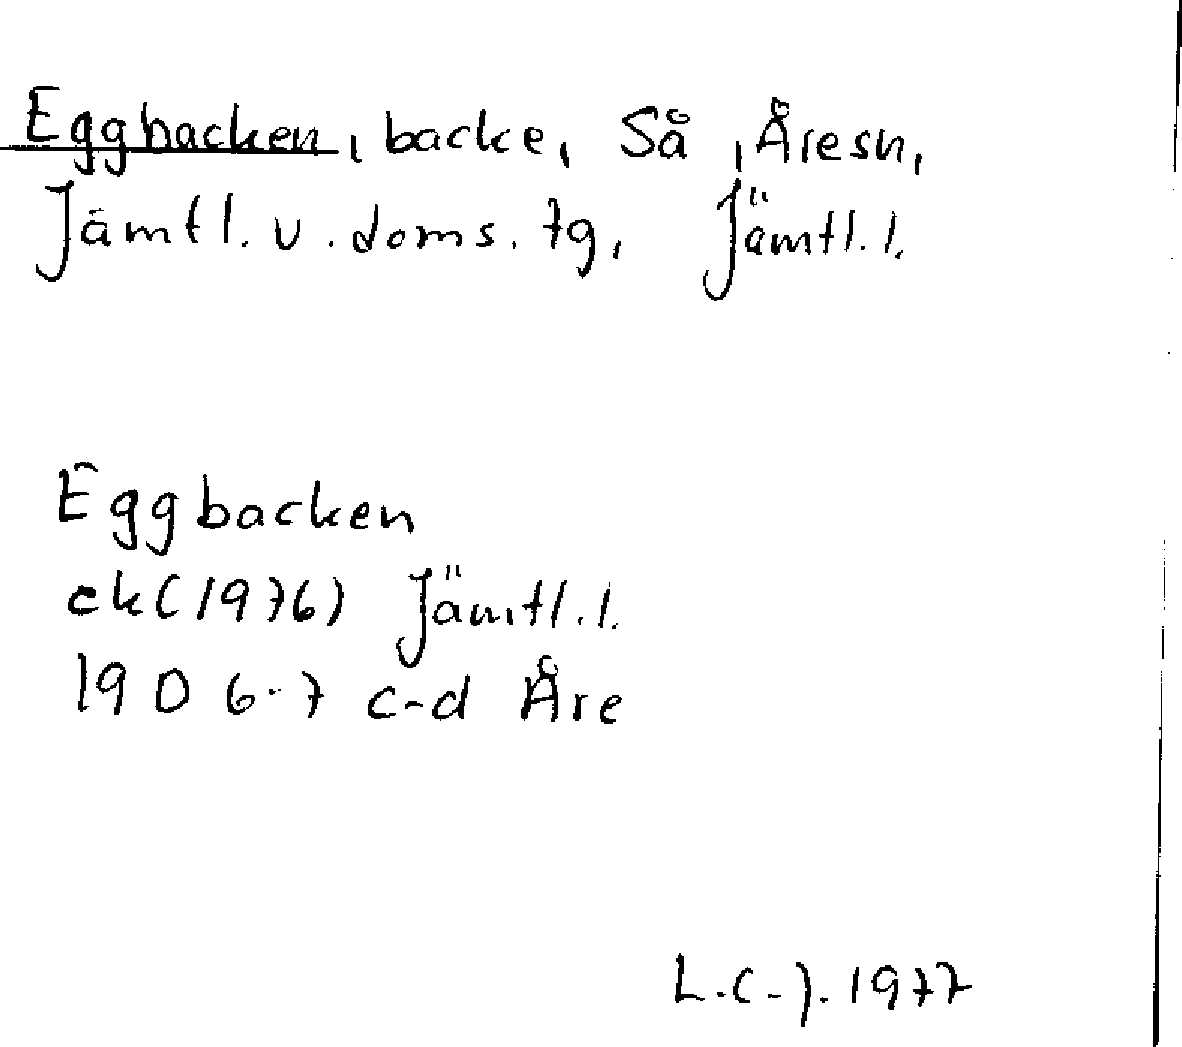 Eggbacken, backe, Så, Åresn,
Jämtl. v. doms. tg, Jämtl. l.
Eggbacken
ek(1976) Jämtl. l.
19 D 6-7 c-d Åre
L.C-J. 1977